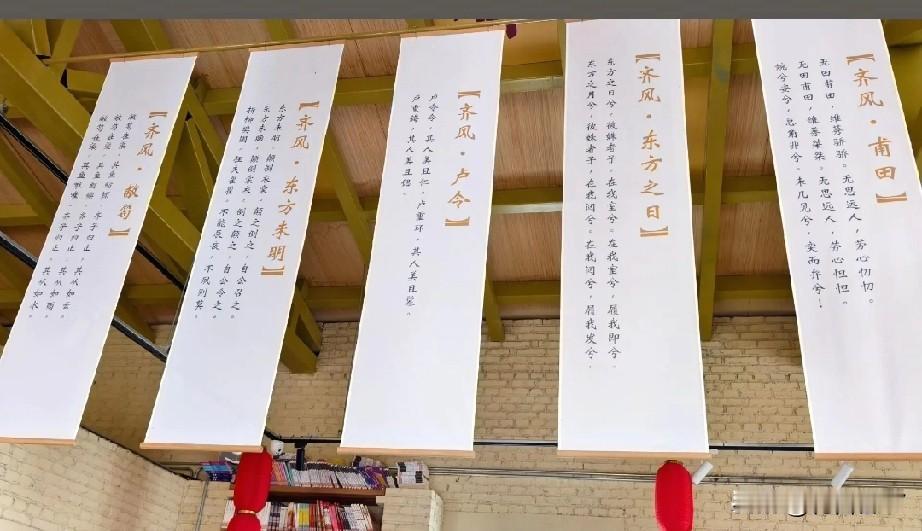 【齐风·甫田】
无田甫田，维莠骄骄。无思远人，劳心忉忉。
无田甫田，维莠桀桀。无思远人，劳心怛怛。
婉兮娈兮，总角丱兮。未几见兮，突而弁兮！
【齐风·东方之日】
东方之日兮，彼姝者子，在我室兮。在我室兮，履我即兮。
东方之月兮，彼姝者子，在我闼兮。在我闼兮，履我发兮。
【齐风·卢令】
卢令令，其人美且仁。卢重环，其人美且鬈。
卢重鋂，其人美且偲。
【齐风·东方未明】
东方未明，颠倒衣裳。颠之倒之，自公召之。
东方未晞，颠倒裳衣。倒之颠之，自公令之。
折柳樊圃，狂夫瞿瞿。不能辰夜，不夙则莫。
【齐风·敝笱】
敝笱在梁，其鱼鲂鳏。齐子归止，其从如云。
敝笱在梁，其鱼鲂鱮。齐子归止，其从如雨。
敝笱在梁，其鱼唯唯。齐子归止，其从如水。